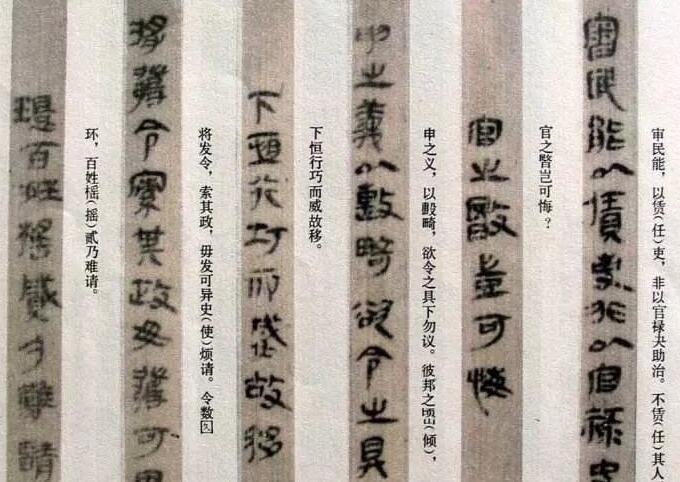 审民能，以赁(任)吏，非以官禄夬助治。不赁(任)其人
審民能以賃吏非以官祿夬
官之暋岂可悔？
官之暋豈可悔
申之义，以毄畸，欲令之具下勿议。彼邦之(倾)，
申之義以毄畸欲令之具
下恒行巧而威故移。
下恆行巧而威故移
将发令，索其政，毋发可异史(使)烦请。令数
將發令索其政毋發可異
环，百姓榣(摇)贰乃难请。
環百姓榣貳乃難請